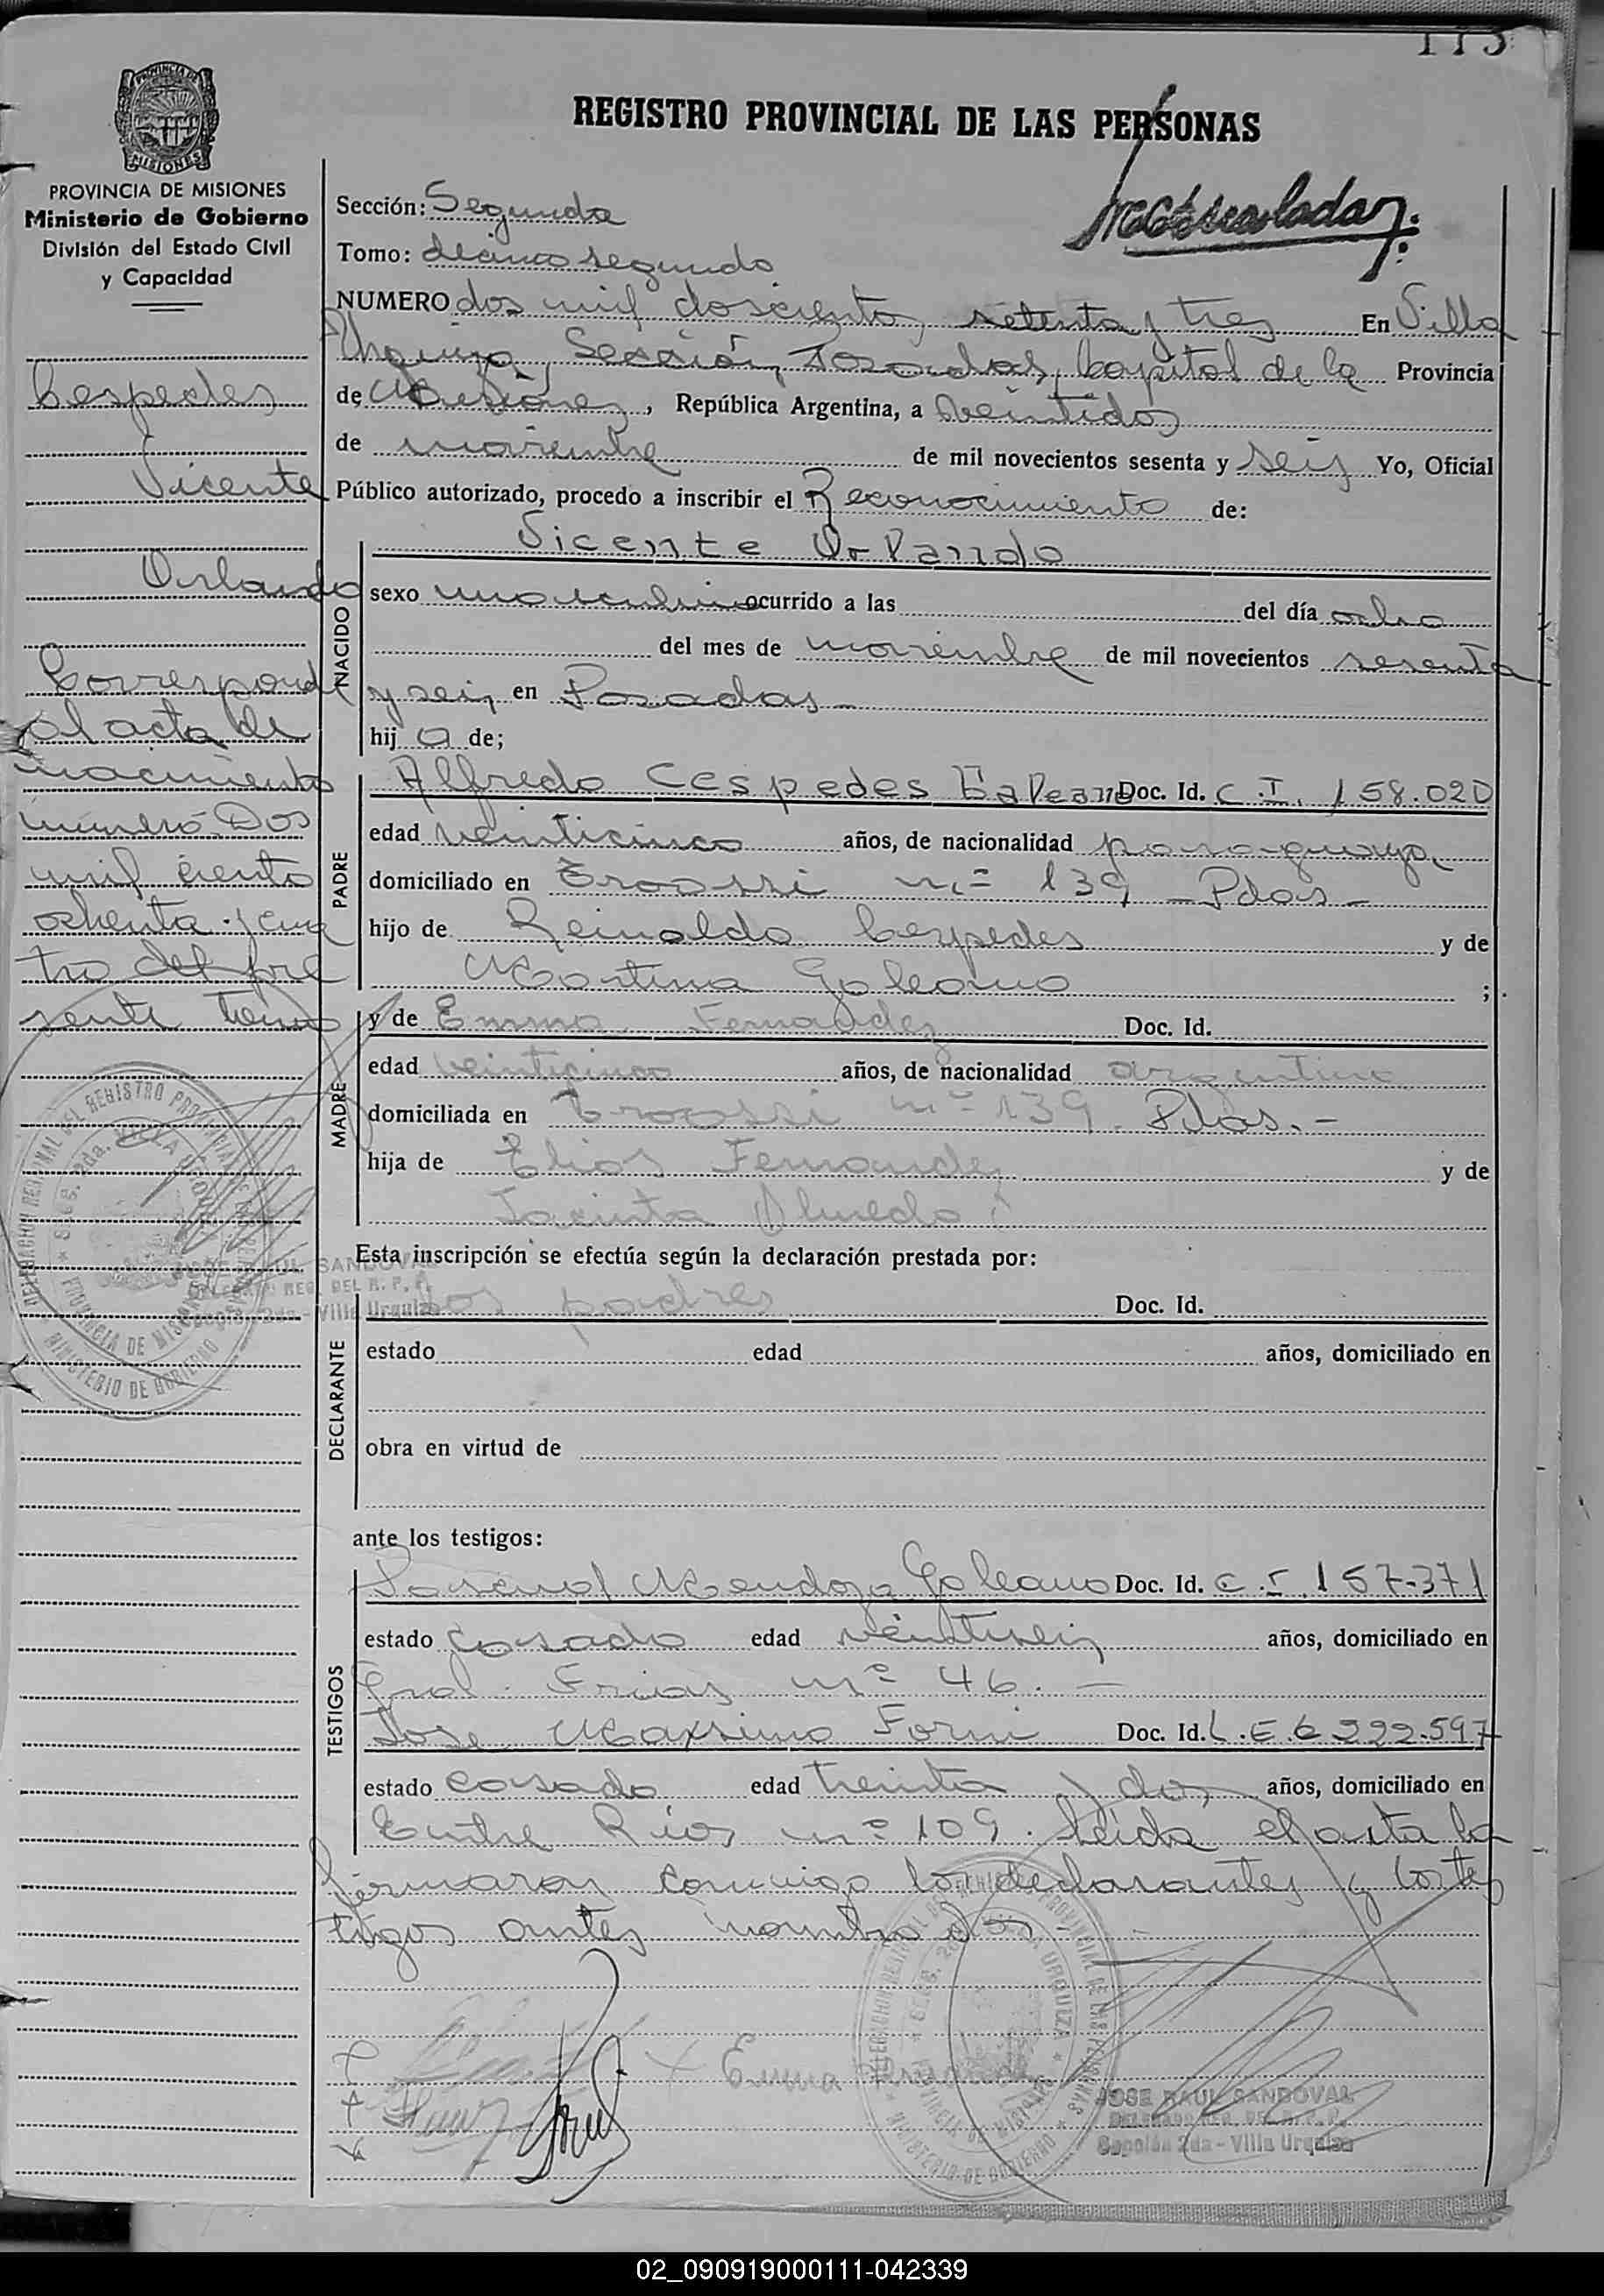 173
REGISTRO PROVINCIAL DE LAS PERSONAS
PROVINCIA DE MISIONES
Ministerio de Gobierno
División del Estado Civil
y Capacidad
Sección: Segunda
Tomo: décimo segundo
NUMERO dos mil doscientos setenta y tres En Villa
Urquiza, Sección, Posadas, Capital de la Provincia
de Misiones, República Argentina, a veintidos
de noviembre de mil novecientos sesenta y seis Yo, Oficial
Público autorizado, procedo a inscribir el Reconocimiento de:
Vicente Orlando
NACIDO
sexo masculino ocurrido a las del día ocho
del mes de noviembre de mil novecientos sesenta
y seis en Posadas
hij o de;
Cespedes
Vicente
Orlando
Corresponde
al acta de
nacimiento
número Dos
mil ciento
ochenta y cua
tro del pre
sente tomo
PADRE
Alfredo Cespedes Galeano Doc. Id. C.I. 158.020
edad veinticinco años, de nacionalidad paraguaya
domiciliado en Trossi nº 139 - Pdas -
hijo de Reinaldo Cespedes y de
Martina Galeano ;
MADRE
y de Emma Fernandez Doc. Id.
edad veinticinco años, de nacionalidad argentina
domiciliada en Trossi nº 139 Pdas. -
hija de Elias Fernandez y de
Jacinta Olmedo
Esta inscripción se efectúa según la declaración prestada por:
DECLARANTE
los padres Doc. Id.
estado edad años, domiciliado en
obra en virtud de
ante los testigos:
TESTIGOS
Pascual Mendoza Galeano Doc. Id. C.I. 157.371
estado casado edad veintiseis años, domiciliado en
Gral. Frias nº 46. -
Jose Maximo Forni Doc. Id. L.E. 6 222.597
estado casado edad treinta y dos años, domiciliado en
Entre Rios nº 109. Leída el acta la
firmaron conmigo los declarantes y los tes
tigos antes nombrados
Emma Fernandez
JOSE RAUL SANDOVAL
DELEGADO REG. DEL R. P. P.
Sección 2da - Villa Urquiza
DELEGACION REGIONAL DEL REGISTRO PROVINCIAL DE LAS PERSONAS
MINISTERIO DE GOBIERNO
PROVINCIA DE MISIONES
02_090919000111-042339